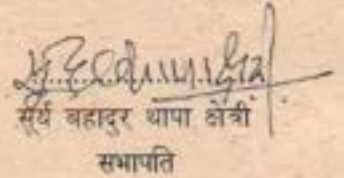 सूर्य बहादुर थापा क्षेत्री
सभापति